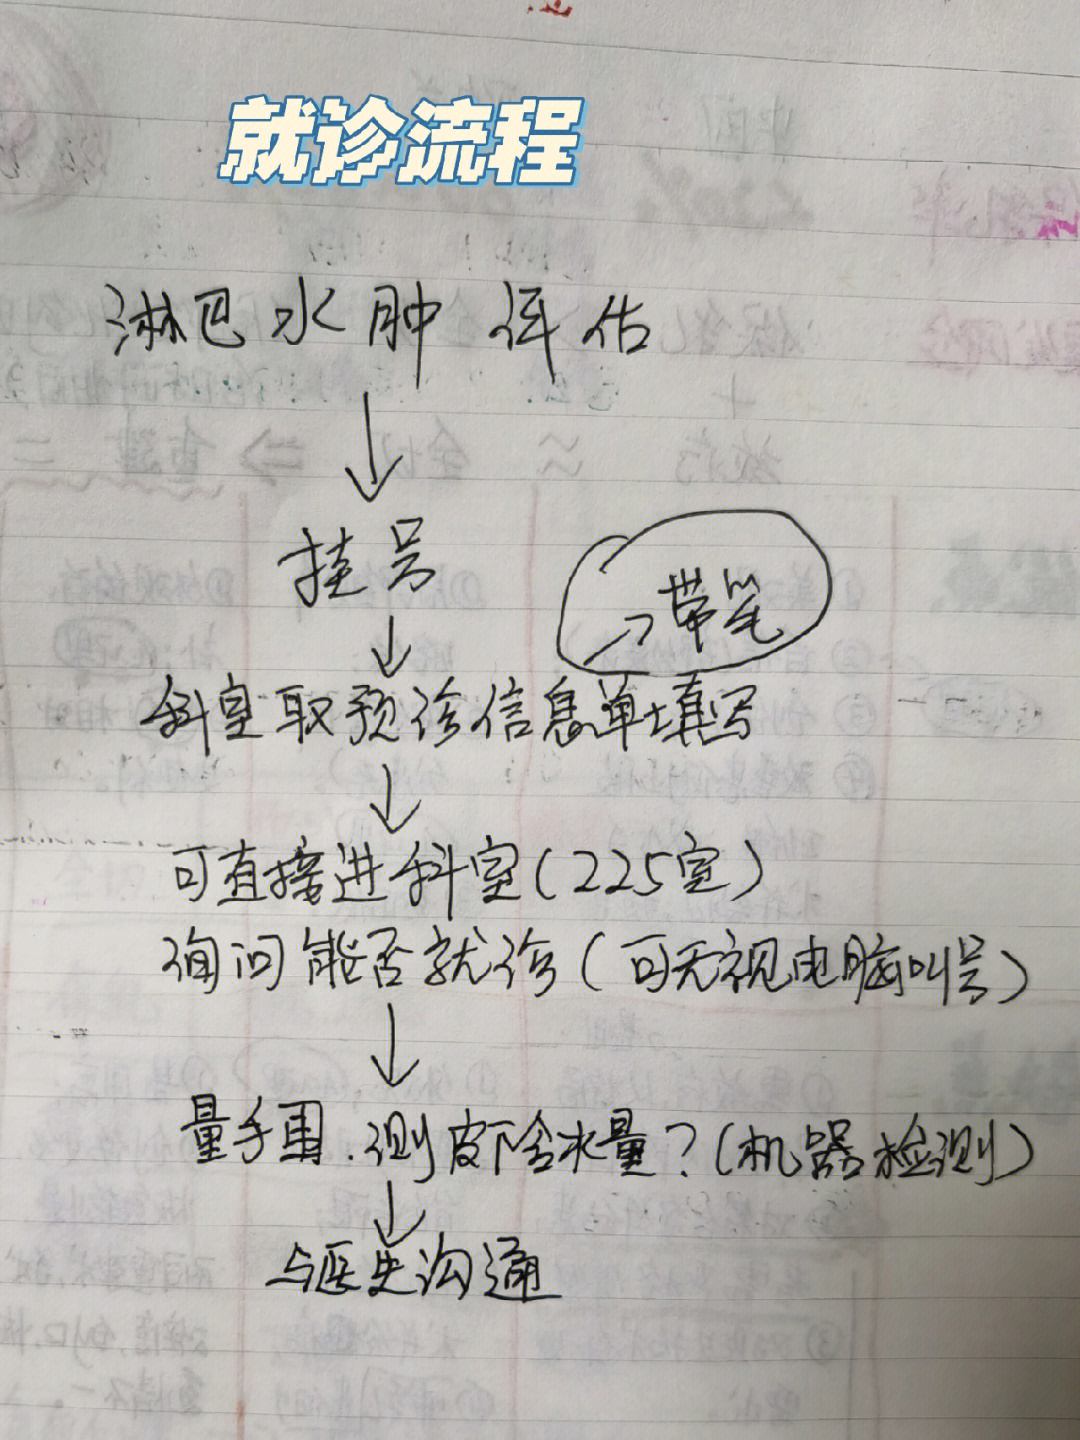 就诊流程
淋巴水肿评估
挂号
带笔
科室取预诊信息单填写
可直接进科室(225室)
询问能否就诊(可无视电脑叫号)
量手围.测皮下含水量?(机器检测)
与医生沟通